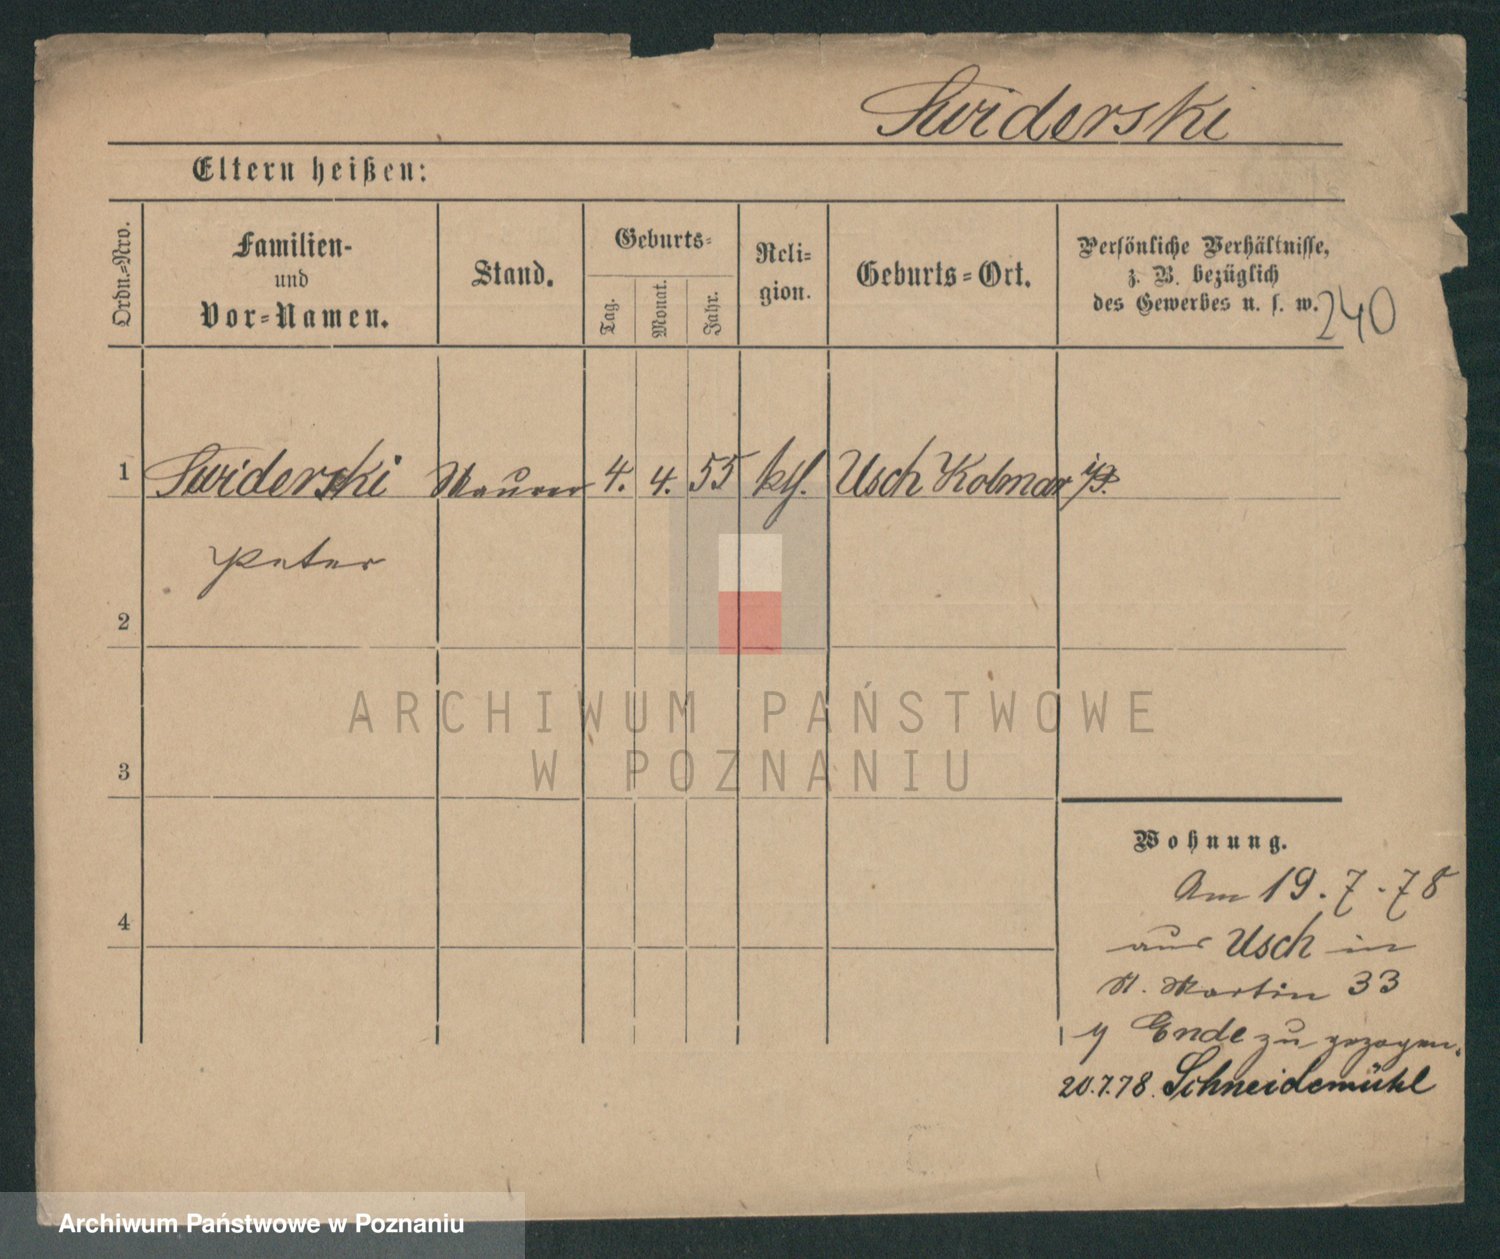 Swiderski
Eltern heißen:
Ordn.-Nro.
Familien-
und
Vor-Namen.
Stand.
Geburts-
Tag.
Monat.
Jahr.
Reli-
gion.
Geburts-Ort.
Persönliche Verhältnisse,
z. B. bezüglich
des Gewerbes u. s. w.
240
1 Swiderski Maurer 4. 4. 55 kth. Usch Kolmar i/P.
Peter
2
3
4
ARCHIWUM PAŃSTWOWE
W POZNANIU
Wohnung.
Am 19.7.78
aus Usch in
St. Martin 33
Ende zu gezogen.
20.7.78. Schneidemühl
Archiwum Państwowe w Poznaniu